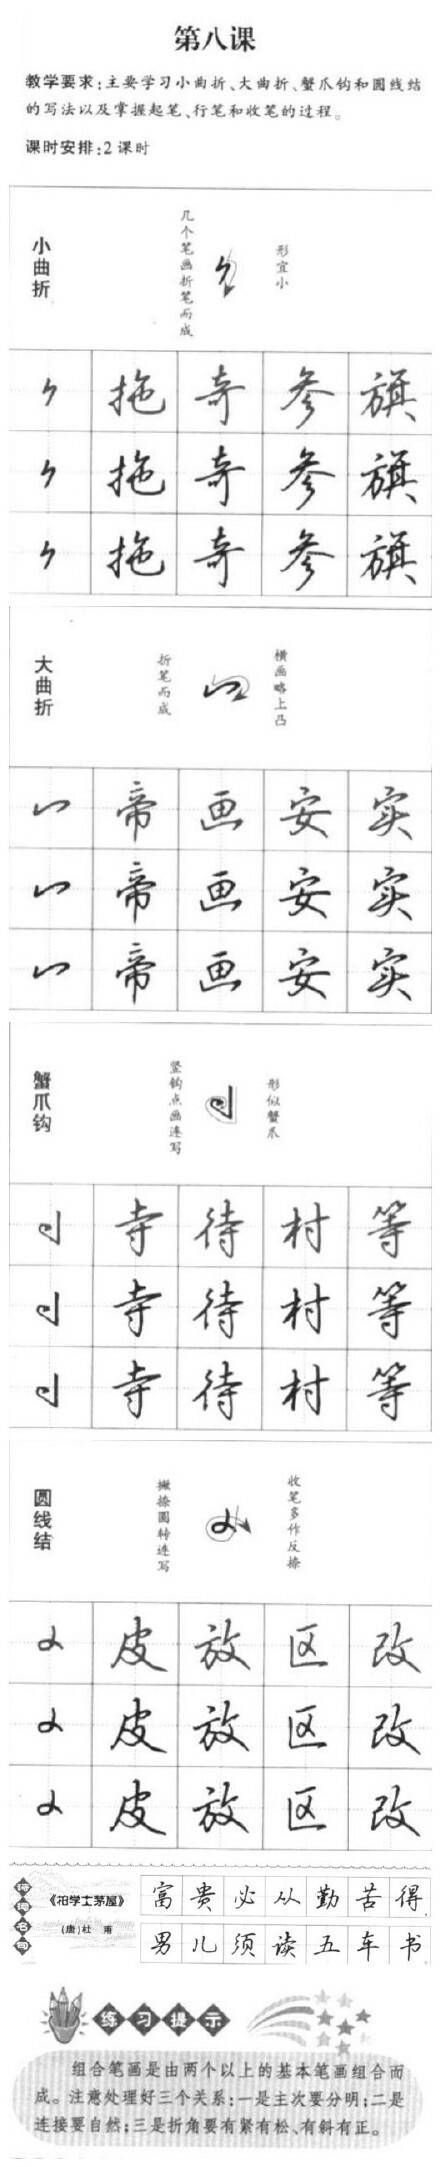 第八课
教学要求:主要学习小曲折、大曲折、蟹爪钩和圆线结
的写法以及掌握起笔、行笔和收笔的过程。
课时安排:2课时
小曲折
几个笔画折笔而成
形宜小
拖奇参旗
拖奇参旗
拖奇参旗
大曲折
折笔而成
横画略上凸
帝画安实
帝画安实
帝画安实
蟹爪钩
竖钩点画连写
形似蟹爪
寺待村等
寺待村等
寺待村等
圆线结
撇捺圆转连写
收笔多作反捺
皮放区改
皮放区改
皮放区改
诗词名句
《柏学士茅屋》
(唐)杜 甫
富贵必从勤苦得
男儿须读五车书
练习提示
组合笔画是由两个以上的基本笔画组合而
成。注意处理好三个关系:一是主次要分明;二是
连接要自然;三是折角要有紧有松、有斜有正。